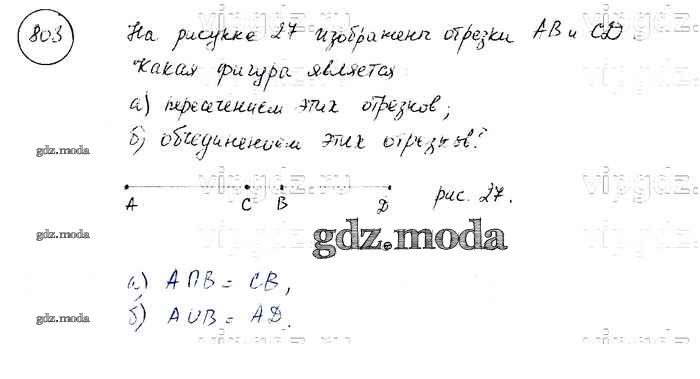 803
На рисунке 27 изображены отрезки AB и CD.
Какая фигура является
а) пересечением этих отрезков;
б) объединением этих отрезков?
gdz.moda
vipgdz.ru
vipgdz.
A C B D рис. 27.
gdz.moda
gdz.moda
а) A∩B = CB,
б) A∪B = AD.
gdz.moda
vipgdz.ru
vipgdz.